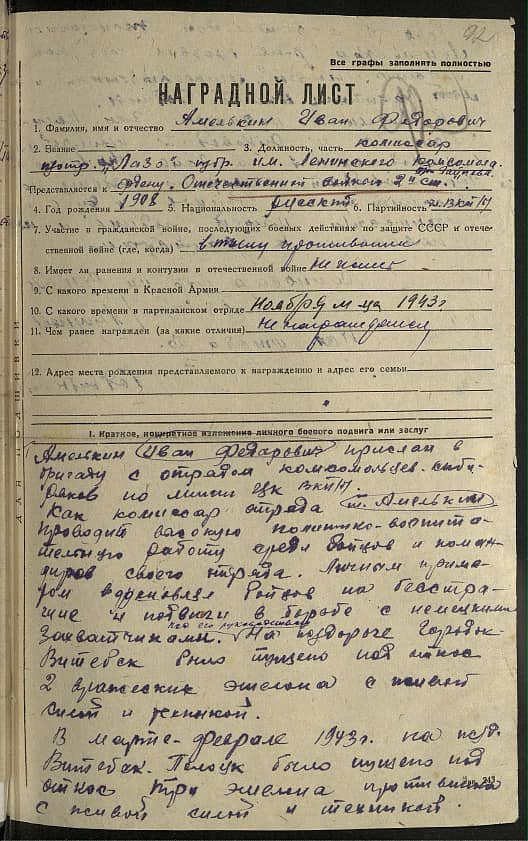 92
Все графы заполнять полностью
НАГРАДНОЙ ЛИСТ
1. Фамилия, имя и отчество Амелькин Иван Федорович
2. Звание 3. Должность, часть комиссар
"Лазо" бр. им. Ленинского комсомола
Представляется к ордену "Отечественной войны 2й ст."
4. Год рождения 1908 5. Национальность русский 6. Партийность чл. ВКП/б
7. Участие в гражданской войне, последующих боевых действиях по защите СССР и отече-
ственной войне (где, когда) в тылу противника
8. Имеет ли ранения и контузии в отечественной войне Не имеет
9. С какого времени в Красной Армии
10. С какого времени в партизанском отряде Ноября м-ца 1943г
11. Чем ранее награжден (за какие отличия) Не награждался
12. Адрес места рождения представляемого к награждению и адрес его семьи
I. Краткое, конкретное изложение личного боевого подвига или заслуг
Амелькин Иван Федарович прислан в
бригаду с отрядом комсомольцев-сиби-
ряков по линии ЦК ВКП/б.
Как комиссар отряда т. Амелькин
проводит высокую политико-воспита-
тельную работу среди бойцов и коман-
диров своего отряда. Личным приме-
ром вдохновлял бойцов на бесстра-
шие и подвиги в борьбе с немецкими
под его руководством
захватчиками. На жд дороге Городок-
Витебск было пущено под откос
2 вражеских эшелона с живой
силой и техникой.
В марте-феврале 1943г. на ж/д.
Витебск-Полоцк было пущено под
откос три эшелона противника
с живой силой и техникой.
Зак. 243
ДЛЯ ПОДШИВКИ